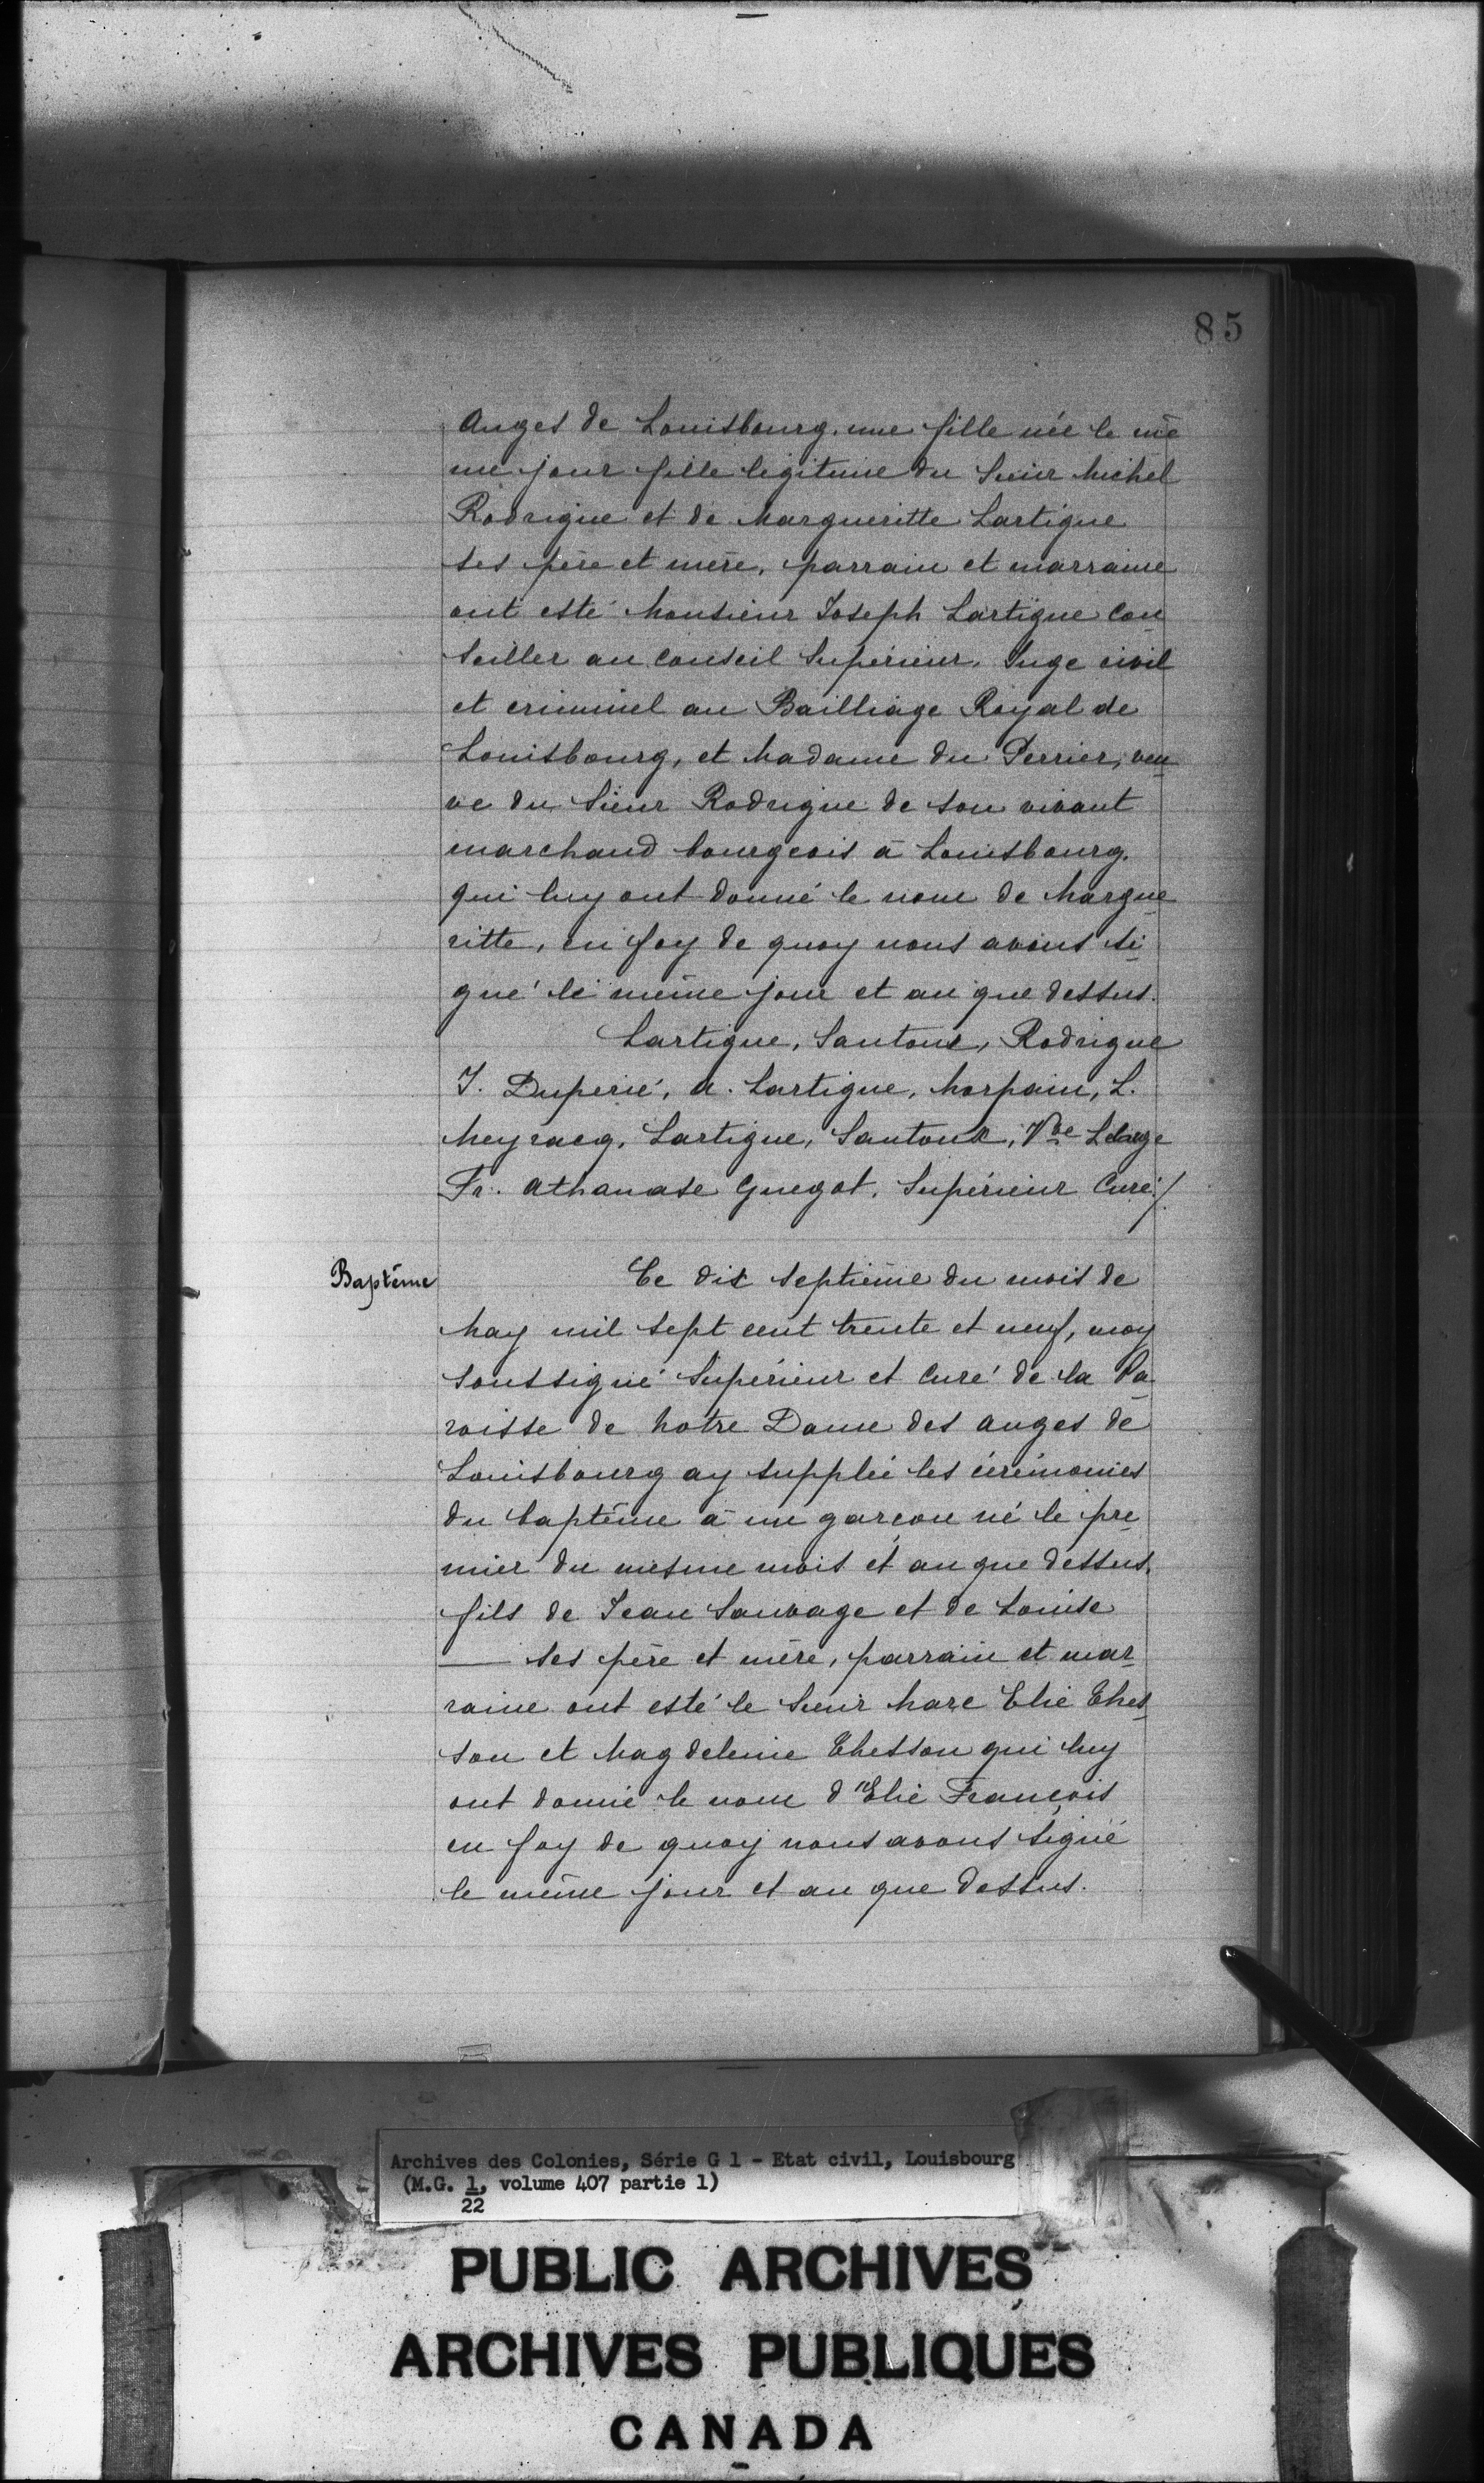 85
Anges de Louisbourg. une fille née le mê
me jour fille légitime du Sieur Michel
Rodrigue et de Margueritte Lartigue
ses père et mère, parrain et marraine
ont esté Monsieur Joseph Lartigue Con
seiller au conseil Supérieur, Juge civil
et criminel au Bailliage Royal de
Louisbourg, et Madame du Perrier, veu
ve du Sieur Rodrigue de son vivant
marchand bourgeois à Louisbourg.
qui luy ont donné le nom de Margue
ritte, en foy de quoy nous avons si
gné le même jour et an que dessus.
Lartigue, Santoux, Rodrigue
J. Duperié, A. Lartigue, Morpain, L.
Meyracq, Lartigue, Santoux, Vve
Fr. Athanase Guegot, Supérieur Curé./.
Baptême
Ce dix septième du mois de
May mil sept cent trente et neuf, moy
soussigné Supérieur et Curé de la Pa
roisse de Notre Dame des Anges de
Louisbourg ay supplée les cérémonies
du baptême à un garçon né le pre
mier du mesme mois et an que dessus,
fils de Jean Sauvage et de Louise
— ses père et mère, parrain et mar
raine ont esté le Sieur Marc Elie Ches
son et Magdeleine Chesson qui luy
ont donné le nom d'Elie François
en foy de quoy nous avons signé
le même jour et an que dessus.
Archives des Colonies, Série G 1 - Etat civil, Louisbourg
(M.G. 1, volume 407 partie 1)
22
PUBLIC ARCHIVES
ARCHIVES PUBLIQUES
CANADA